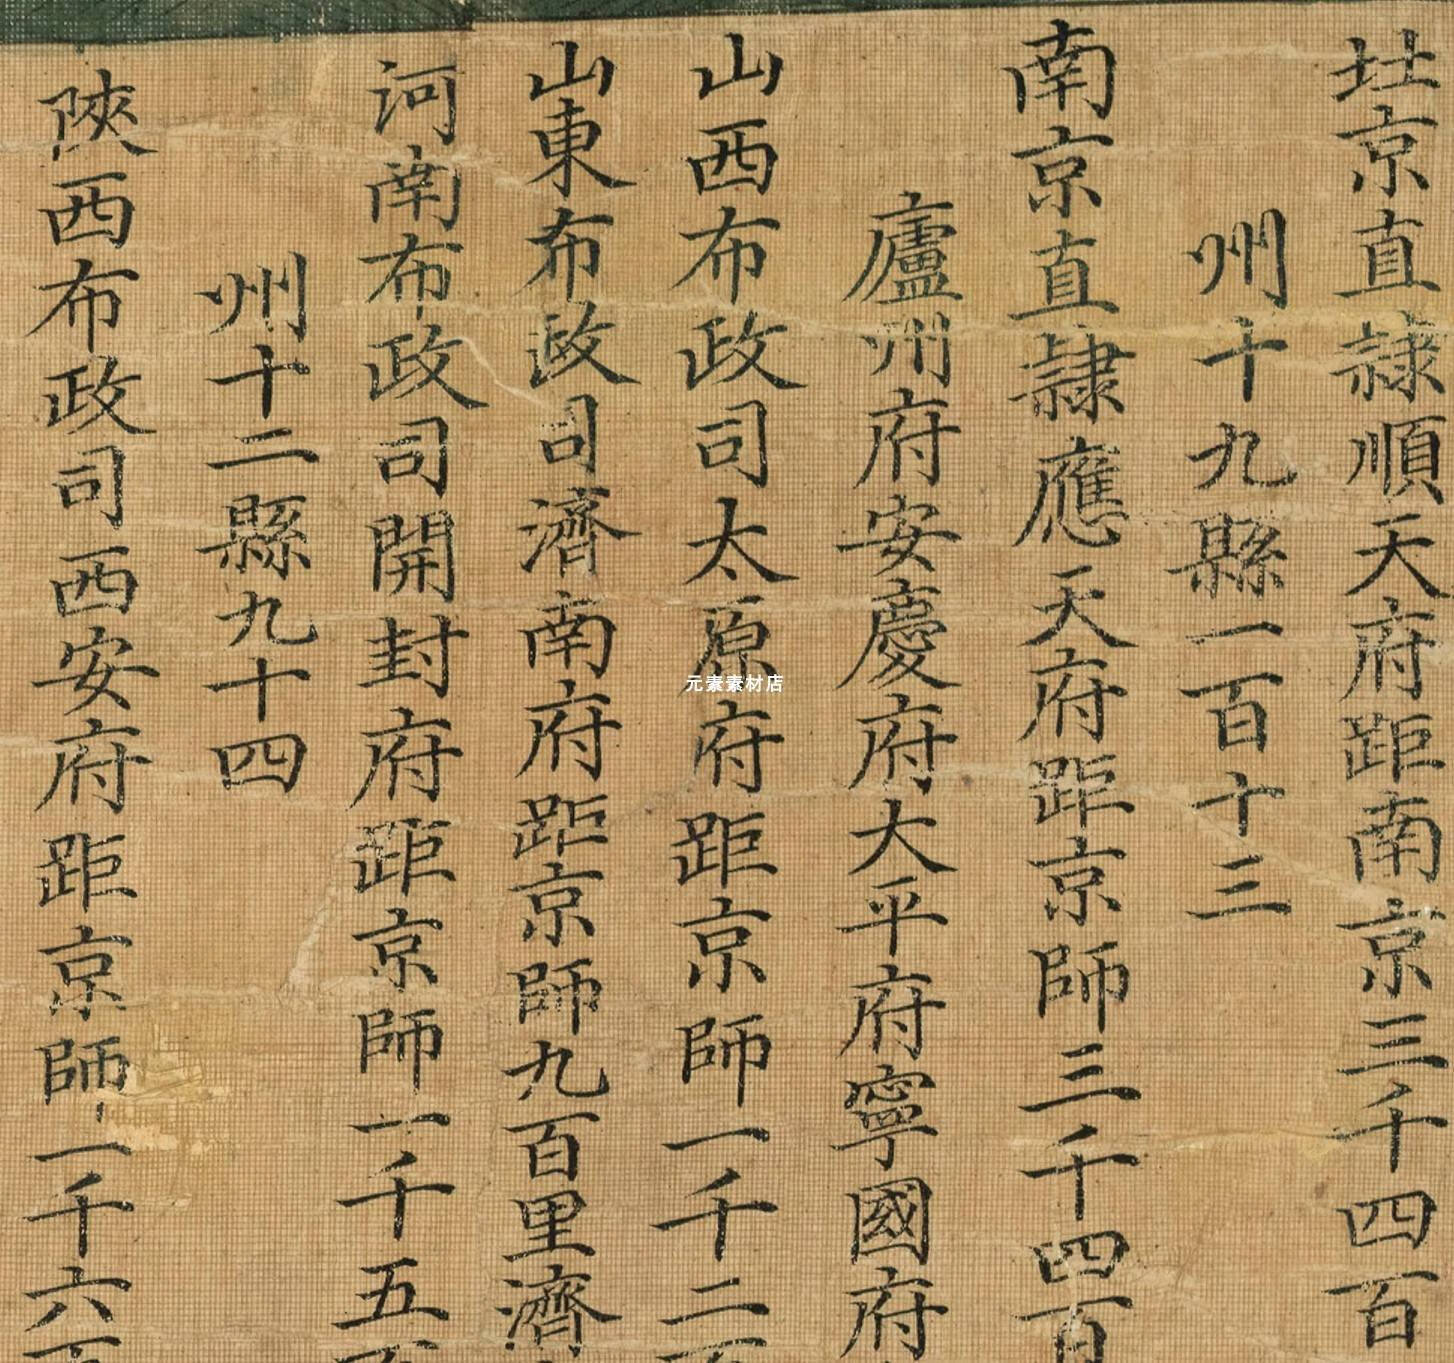 北京直隷順天府距南京三千四百
州十九縣一百十三
南京直隷應天府距京師三千四百
廬州府安慶府大平府寧國府
山西布政司太原府距京師一千二百
山東布政司濟南府距京師九百里濟
河南布政司開封府距京師一千五百
州十二縣九十四
陝西布政司西安府距京師一千六百
元素素材店